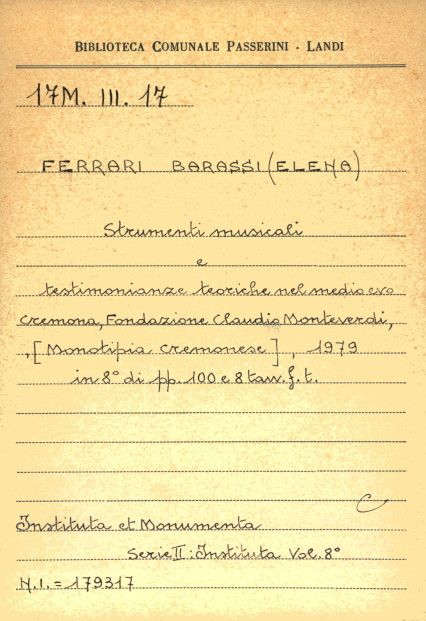 BIBLIOTECA COMUNALE PASSERINI - LANDI
17M. III. 17
FERRARI BARASSI (ELENA)
Strumenti musicali
e
testimonianze teoriche nel medio evo
Cremona, Fondazione Claudio Monteverdi,
, [Monotipia Cremonese], 1979
in 8° di pp. 100 e 8 tavv. f. t.
C
Instituta et Monumenta
Serie II: Instituta Vol. 8°
N.I. = 179317